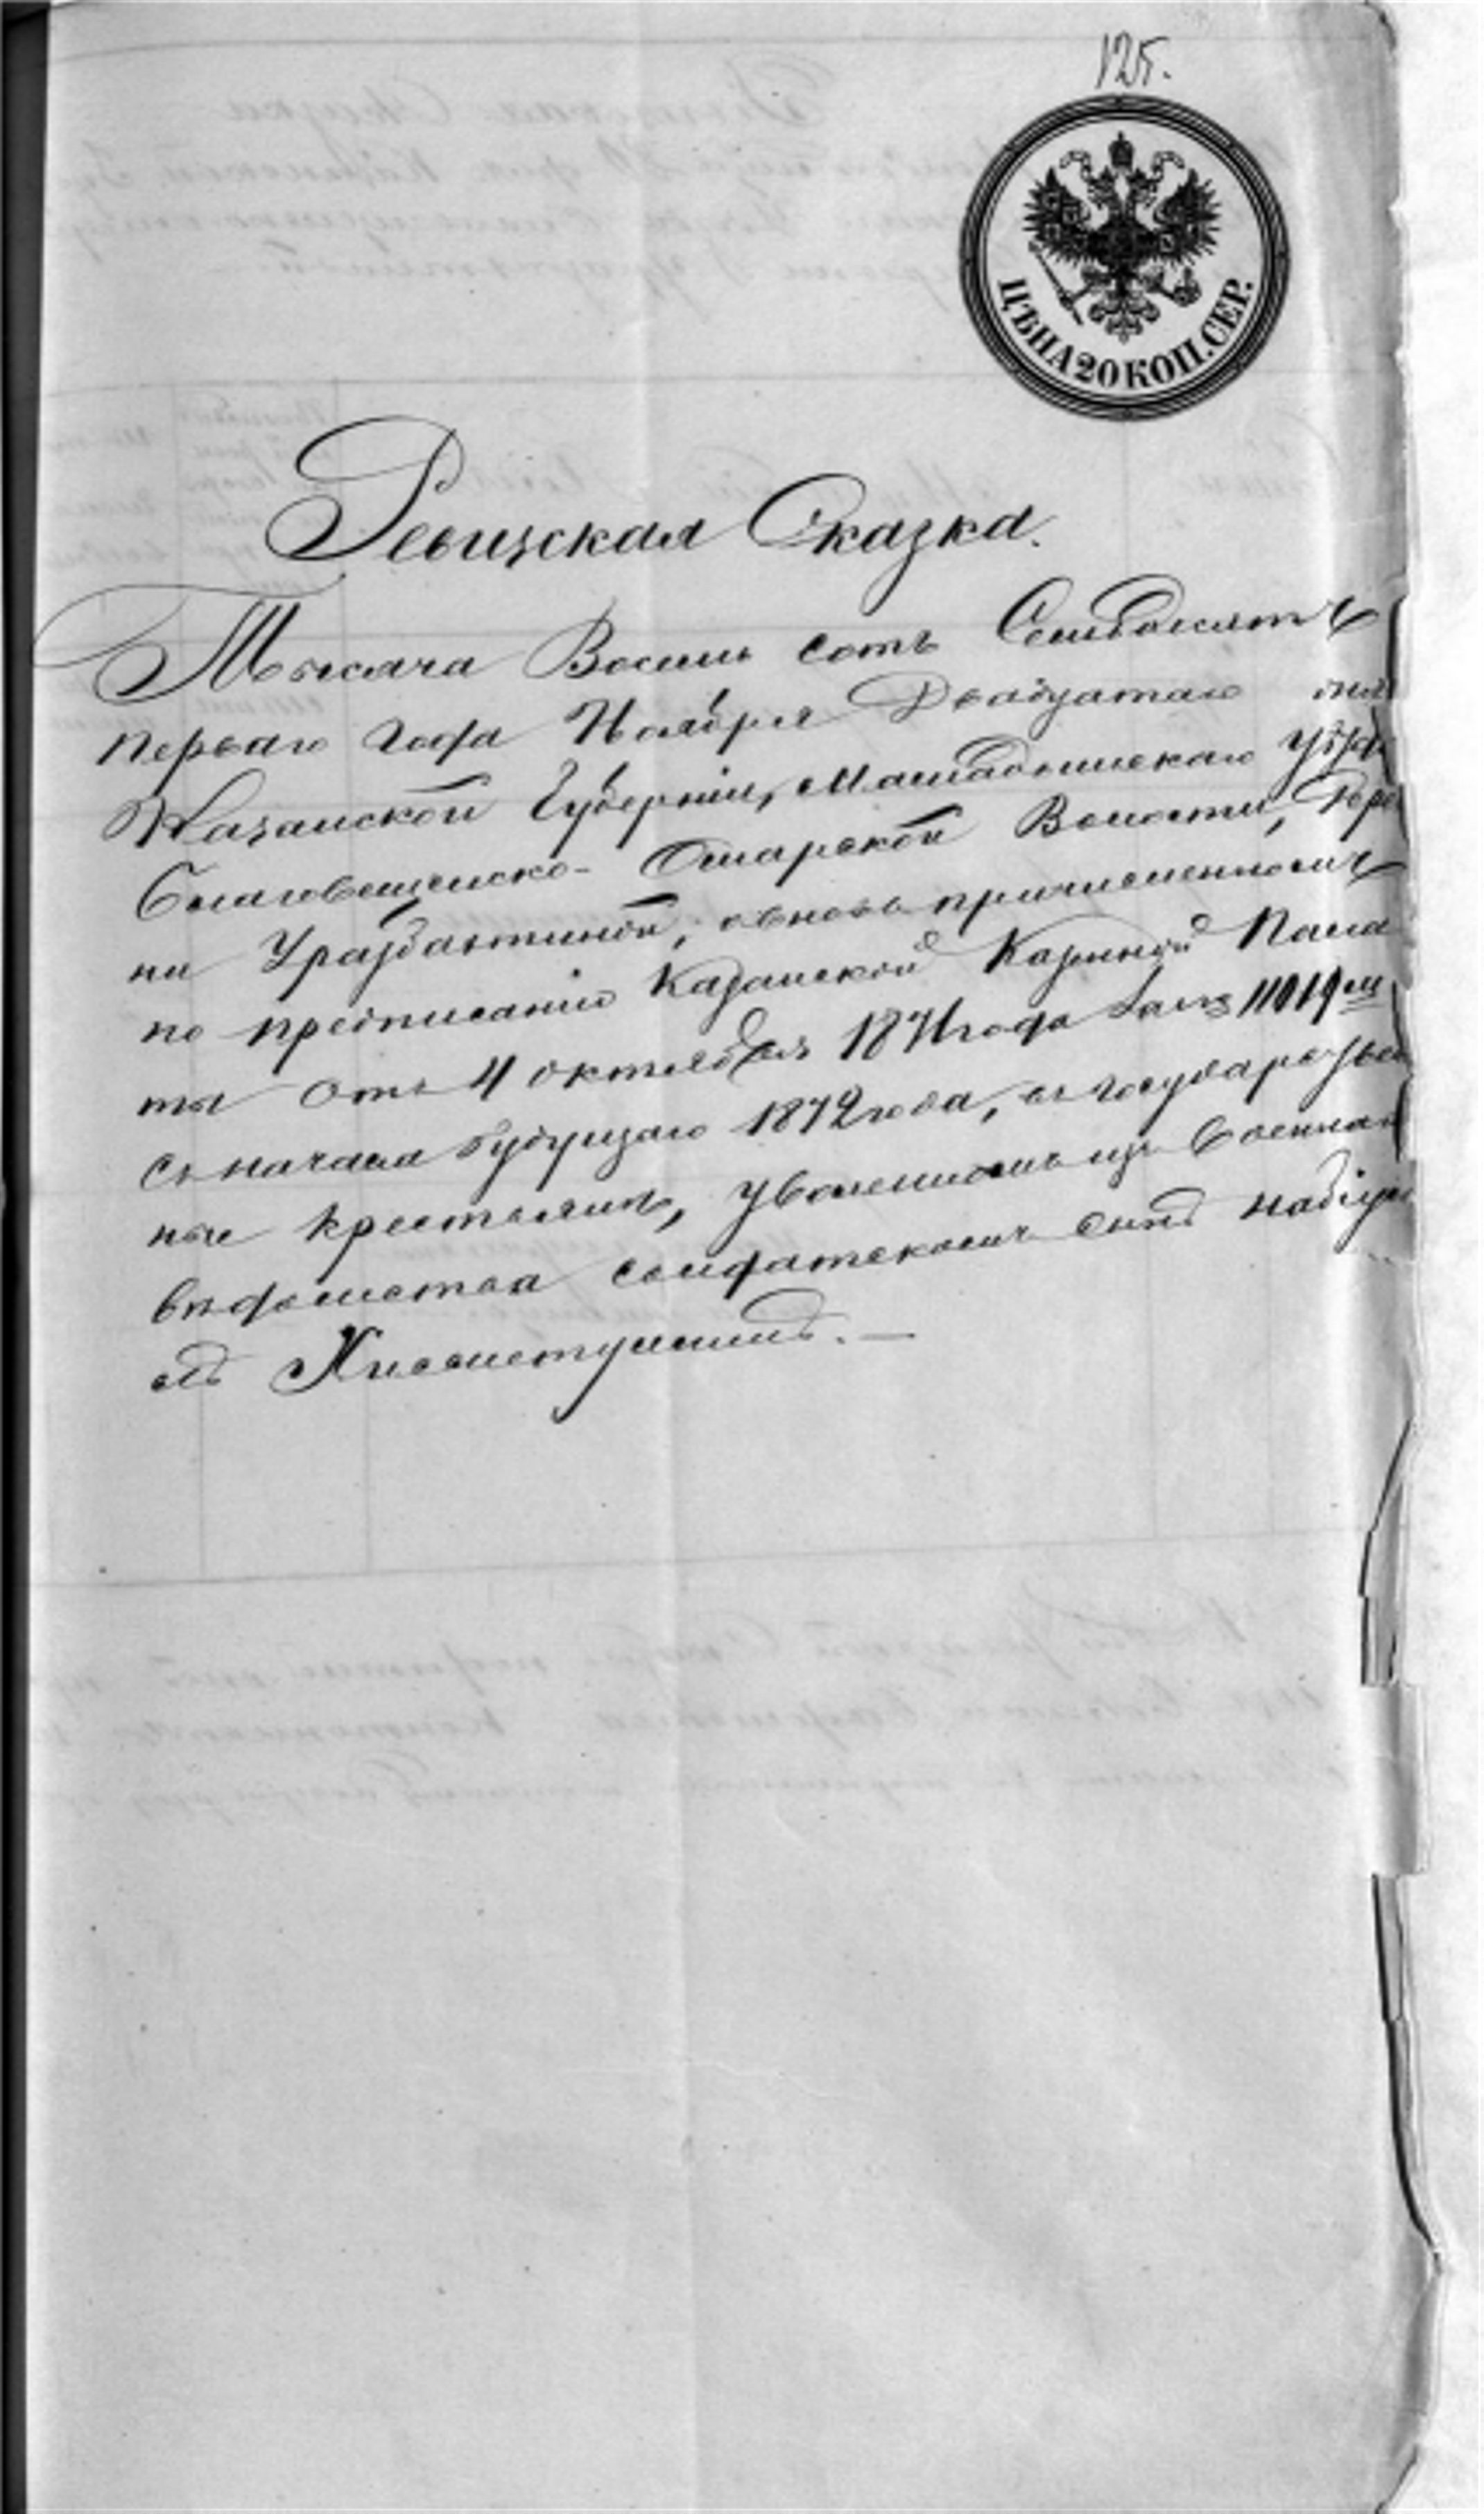 125.
ЦѢНА 20 КОП. СЕР.
Ревизская Сказка.
Тысяча Восемь сотъ Семьдесятъ
перваго года Ноября Двадцатаго дня
Казанской Губерніи, Мамадышскаго уѣзда
Омарской Волости, Дерев
ни Уразбахтиной, о вновь причисленномъ
по предписанію Казанской Казенной Пала
ты отъ 4 октября 1871 года за № 11019 мъ
съ начала будущаго 1872 года, въ государствен
ные крестьяне, уволенномъ изъ Военнаго
вѣдомства солдатскомъ сынѣ